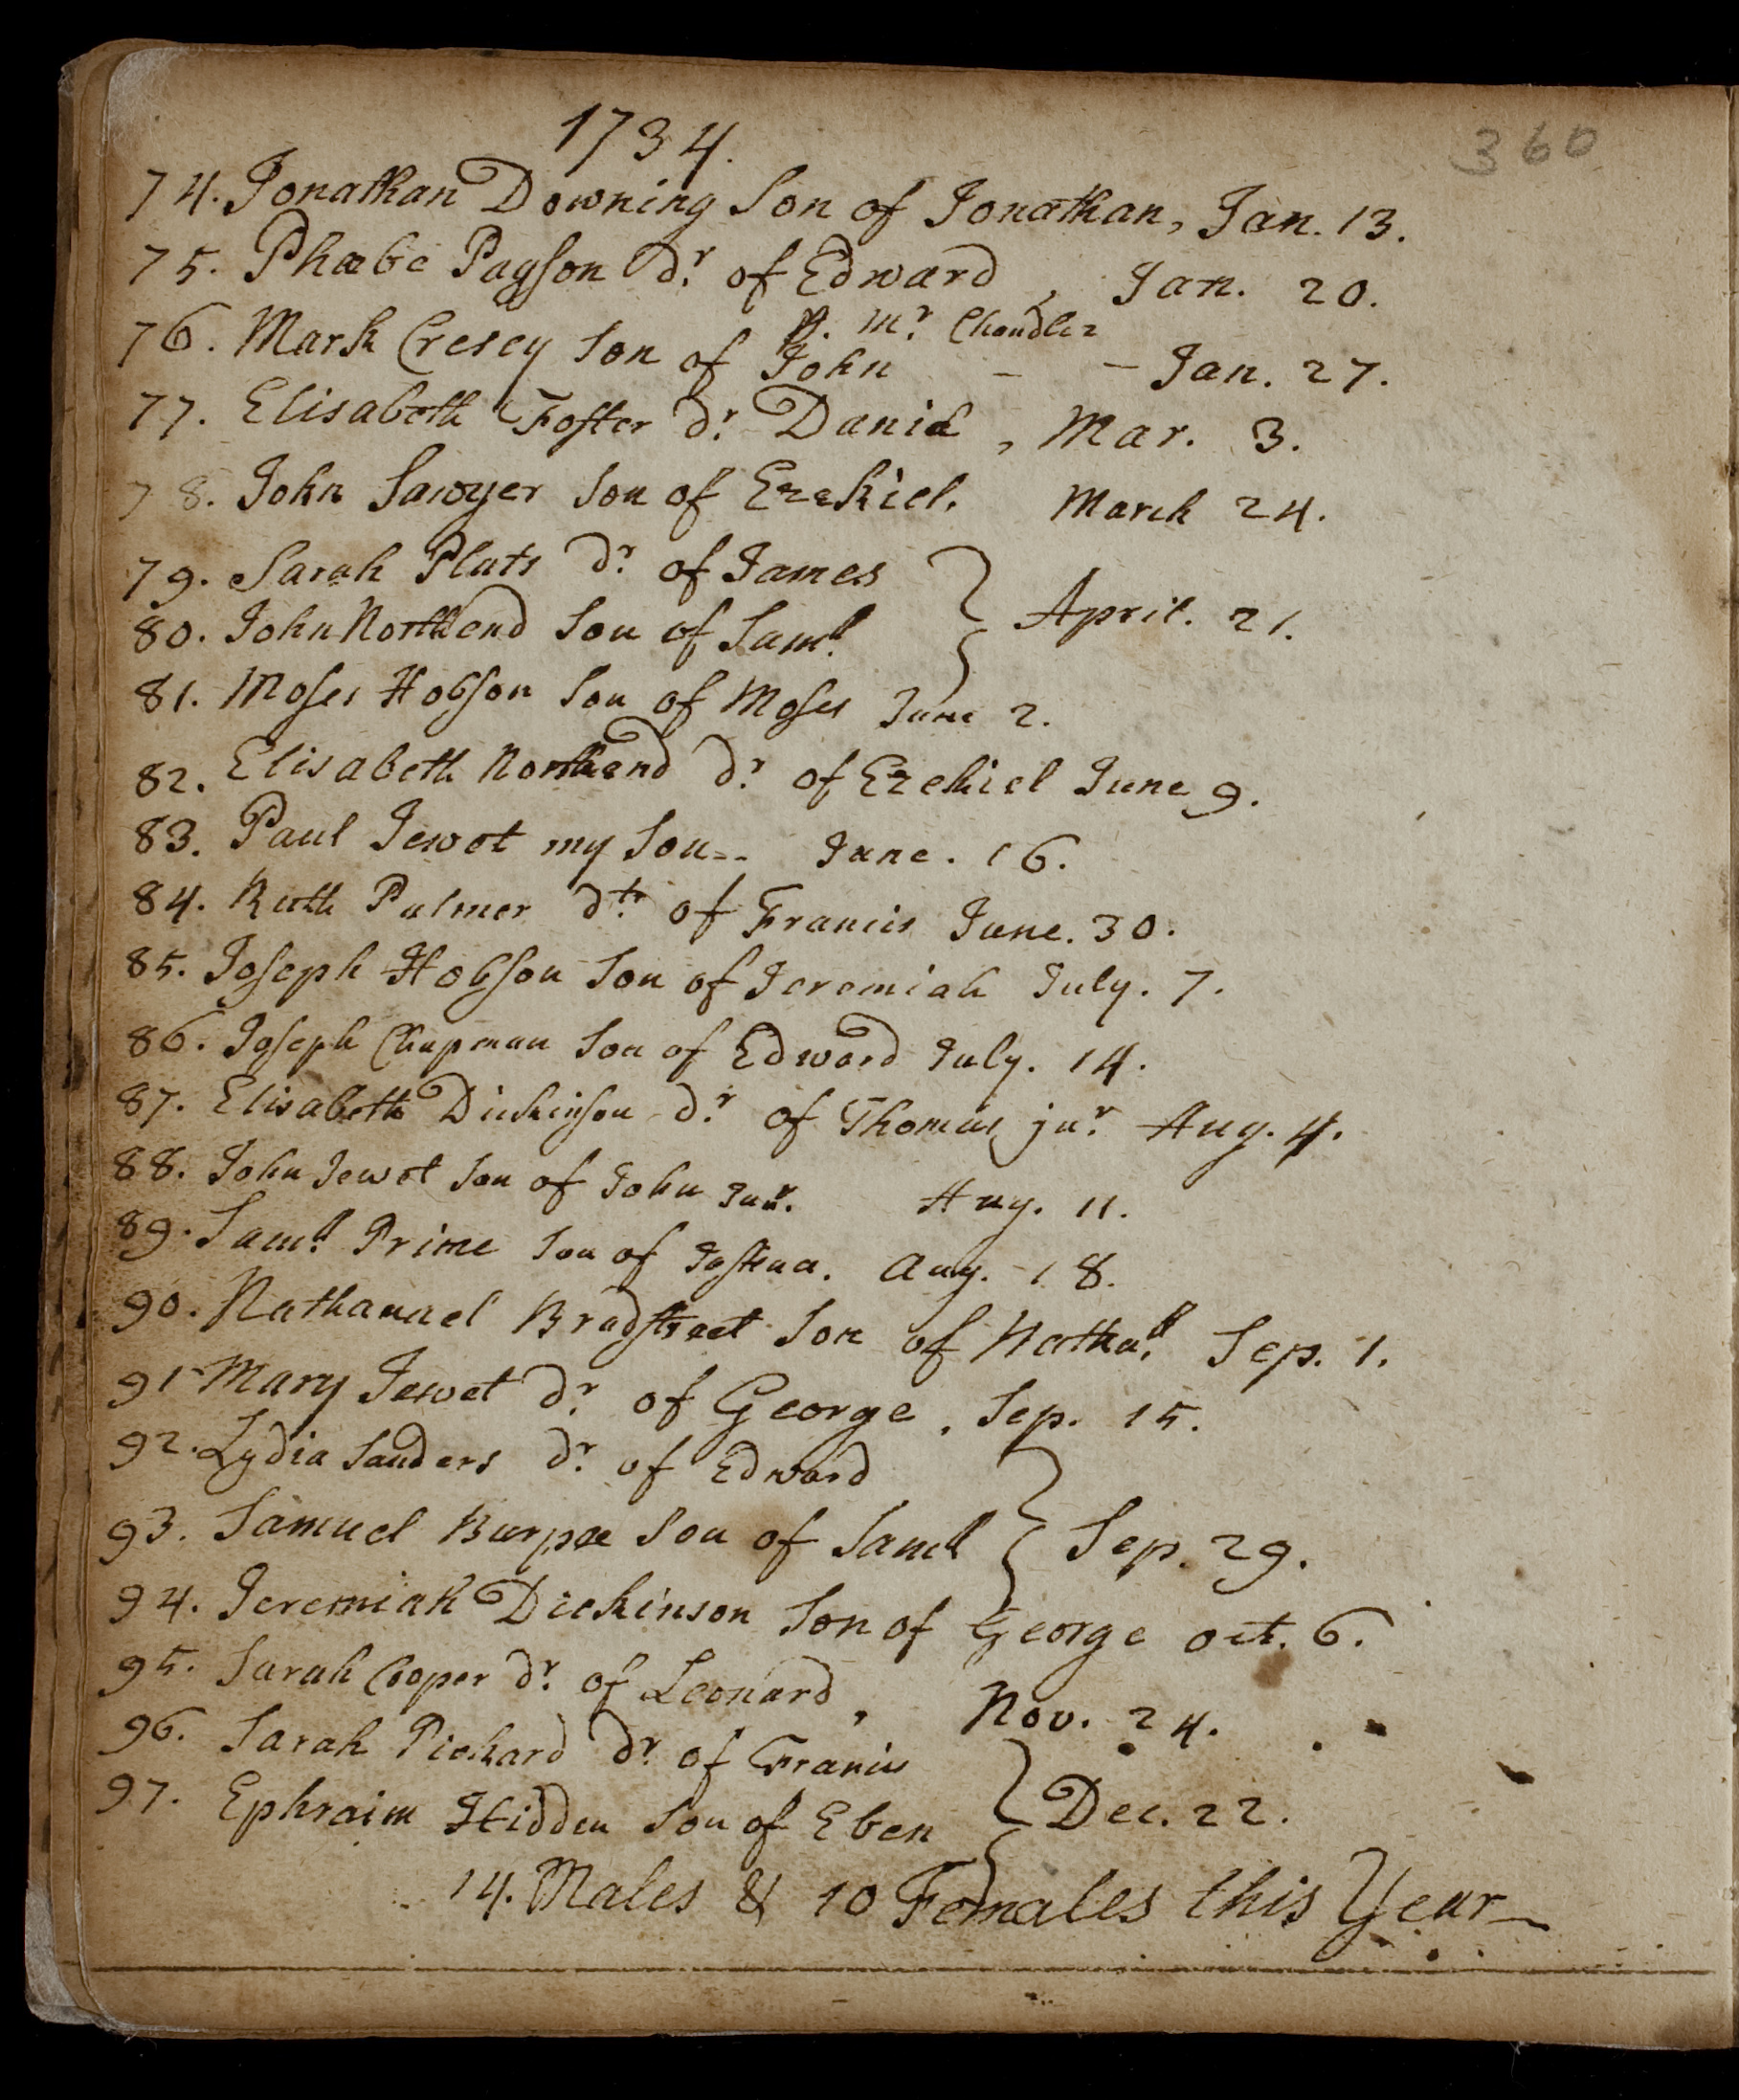 360
1734.
74. Jonathan Downing Son of Jonathan, Jan. 13.
75. Phœbe Payson dr. of Edward, Jan. 20.
mr. Chandler
76. Mark Cresey Son of John - - Jan. 27.
77. Elisabeth Foster dr. Daniel, Mar. 3.
78. John Sawyer Son of Ezekiel. March 24.
79. Sarah Plats dr. of James
80. John Northend Son of Saml. } April. 21.
81. Moses Hobson Son of Moses June 2.
82. Elisabeth Northend dr. of Ezekiel June 9.
83. Paul Jewet my Son -- June. 16.
84. Ruth Palmer dtr. of Francis June. 30.
85. Joseph Hobson Son of Jeremiah July. 7.
86. Joseph Chapman Son of Edward July. 14.
87. Elisabeth Dickinson dr. of Thomas jur. Aug. 4.
88. John Jewet Son of John Junr. Aug. 11.
89. Saml. Prime Son of Joshua. Aug. 18.
90. Nathanael Bradstreet Son of Nathall. Sep. 1.
91 Mary Jewet dr. of George, Sep. 15.
92. Lydia Sanders dr. of Edward
93. Samuel Burpee Son of Saml } Sep. 29.
94. Jeremiah Dickinson Son of George Oct. 6.
95. Sarah Cooper dr. of Leonard, Nov. 24.
96. Sarah Pickard dr. of Francis
97. Ephraim Hidden Son of Eben } Dec. 22.
14. Males & 10 Females this Year